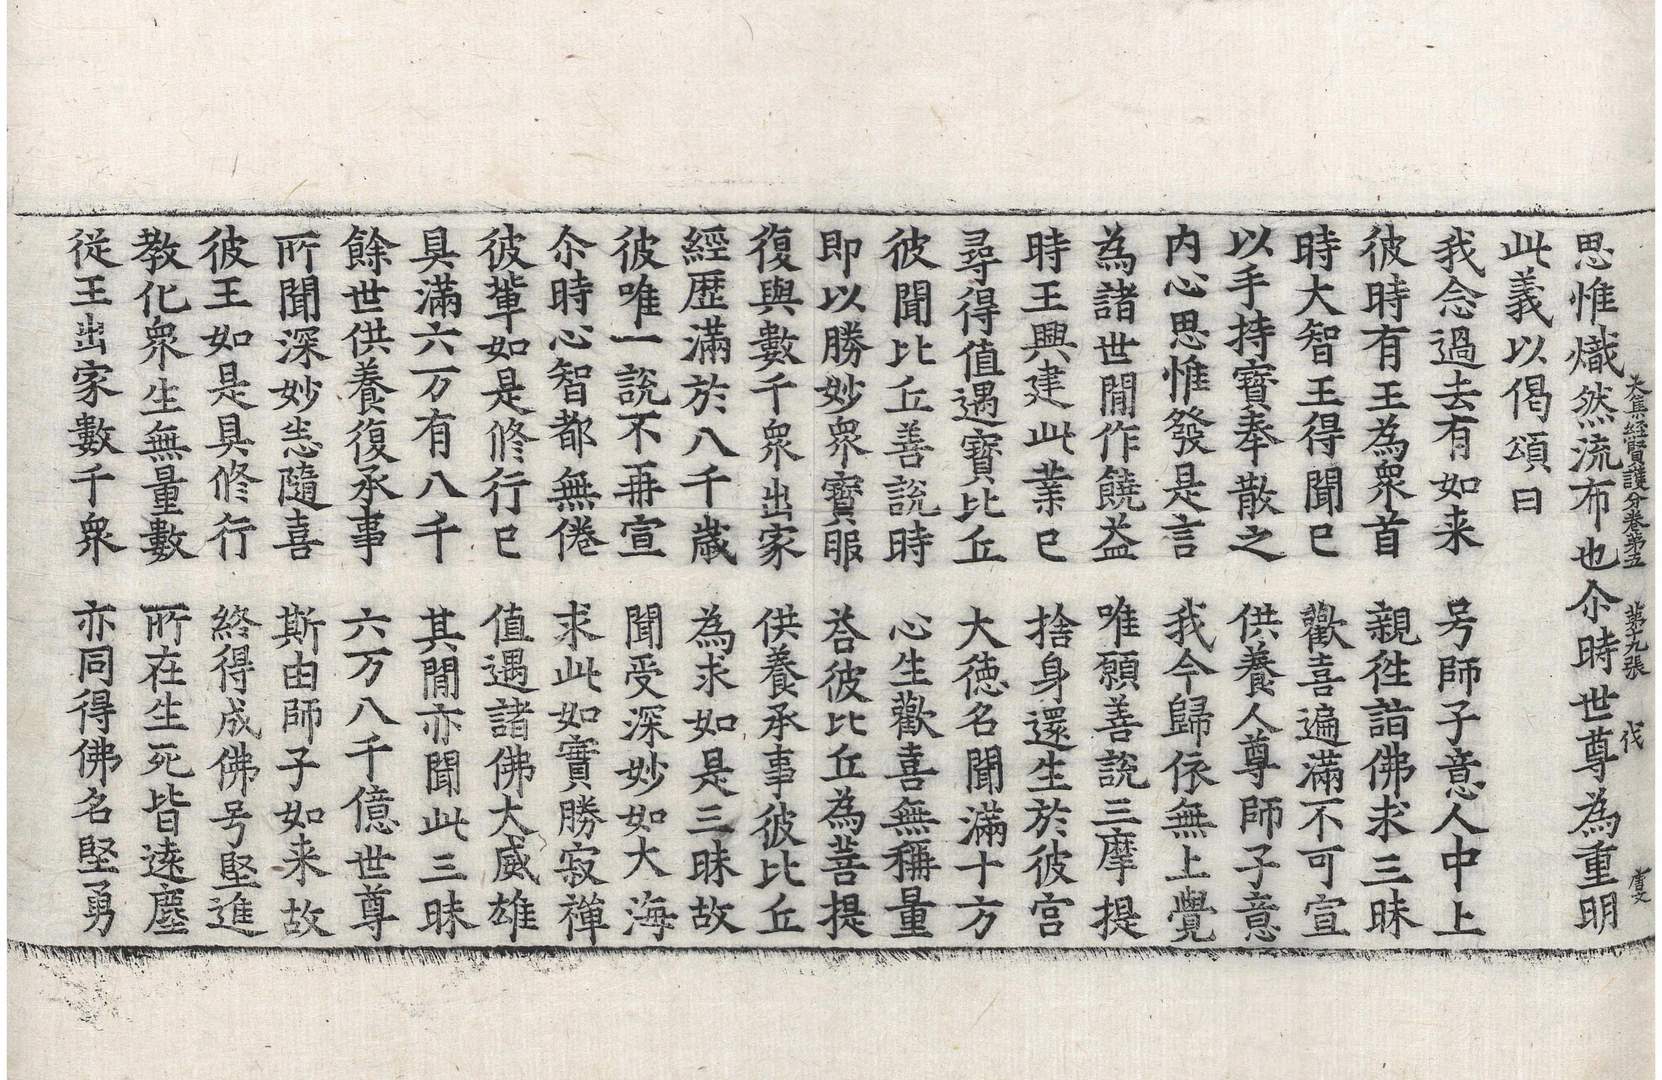 思惟熾然流布也尒時世尊為重明
大集經賢護分卷第五　第九張　伐
此義以偈頌曰
我念過去有如来　号師子意人中上
彼時有王為衆首　親徃詣佛求三昧
時大智王得聞已　歡喜遍滿不可宣
以手持寶奉散之　供養人尊師子意
内心思惟發是言　我今歸依無上覺
為諸世間作饒益　唯願善說三摩提
時王興建此業已　捨身還生於彼宮
尋得值遇寶比丘　大德名聞滿十方
彼聞比丘善說時　心生歡喜無稱量
即以勝妙衆寶服　荅彼比丘為菩提
復與數千衆出家　供養承事彼比丘
經歷滿於八千歲　為求如是三昧故
彼唯一說不再宣　聞受深妙如大海
尒時心智都無倦　求此如實勝寂禪
彼輩如是修行已　值遇諸佛大威雄
具滿六万有八千　其間亦聞此三昧
餘世供養復承事　六万八千億世尊
所聞深妙悉隨喜　斯由師子如来故
彼王如是具修行　終得成佛号堅進
教化衆生無量數　所在生死皆遠塵
從王出家數千衆　亦同得佛名堅勇